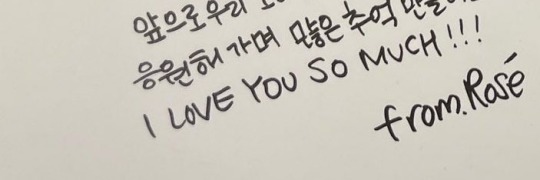 앞으로 우리
응원해 가며 많은 추억
I LOVE YOU SO MUCH!!!
from. Rosé